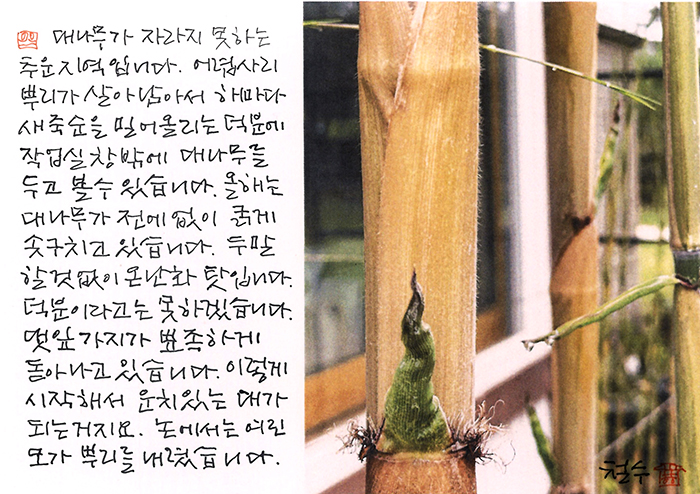 대나무가 자라지 못하는
추운지역입니다. 어렵사리
뿌리가 살아남아서 해마다
새죽순을 밀어올리는 덕분에
작업실창밖에 대나무를
두고 볼수 있습니다. 올해는
대나무가 전에없이 굵게
솟구치고 있습니다. 두말
할것없이 온난화 탓입니다.
덕분이라고는 못하겠습니다.
몇잎 가지가 뾰족하게
돋아나고 있습니다. 이렇게
시작해서 운치있는 대가
되는거지요. 논에서는 어린
모가 뿌리를 내렸습니다.
철수